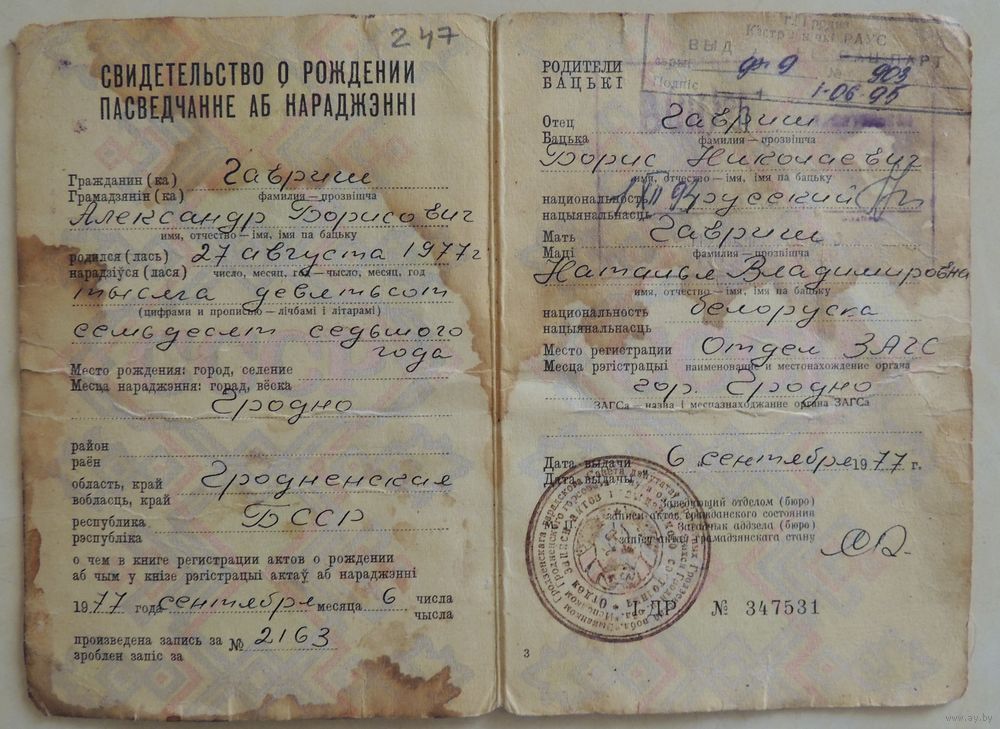 247
СВИДЕТЕЛЬСТВО О РОЖДЕНИИ
ПАСВЕДЧАННЕ АБ НАРАДЖЭННІ
Гражданин (ка) Гавриш
Грамадзянін (ка) фамилия — прозвішча
Александр Борисович
имя, отчество — імя, імя па бацьку
родился (лась) 27 августа 1977г
нарадзіўся (лася) число, месяц, год — чысло, месяц, год
тысяча девятьсот
(цифрами и прописью — лічбамі і літарамі)
семьдесят седьмого
года
Место рождения: город, селение
Месца нараджэння: горад, вёска
Гродно
район
раён
область, край Гродненская
вобласць, край
республика БССР
рэспубліка
о чем в книге регистрации актов о рождении
аб чым у кнізе рэгістрацыі актаў аб нараджэнні
1977 года сентября месяца 6 числа
чысла
произведена запись за № 2163
зроблен запіс за
РОДИТЕЛИ
БАЦЬКІ
г. Гродна
РАУС
ВЫД
№ 903
Подпіс 1.06 95
Отец Гавриш
Бацька фамилия — прозвішча
Борис Николаевич
имя, отчество — імя, імя па бацьку
национальность русский
нацыянальнасць
Мать Гавриш
Маці фамилия — прозвішча
Наталья Владимировна
имя, отчество — імя, імя па бацьку
национальность белоруска
нацыянальнасць
Место регистрации Отдел ЗАГС
Месца рэгістрацыі наименование и местонахождение органа
гор. Гродно
ЗАГСа — назва і месцазнаходжанне органа ЗАГСа
Дата выдачи 6 сентября 1977 г.
Дата выдачы
Заведующий отделом (бюро)
записи актов гражданского состояния
Загадчык аддзела (бюро)
запісу актаў грамадзянскага стану
І-ДР № 347531
3
www.ay.by